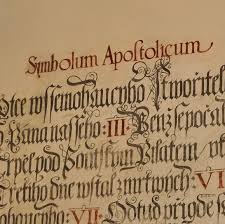 Symbolum Apostolicum
Otce wssemohaucyho Stworitel
Pana nasseho: III: Kenz se počal
trpěl pod Pontskym Pilatem
Tretiho dne wstal z mrtwych: VI
hauceho: VII: Odtud prigde